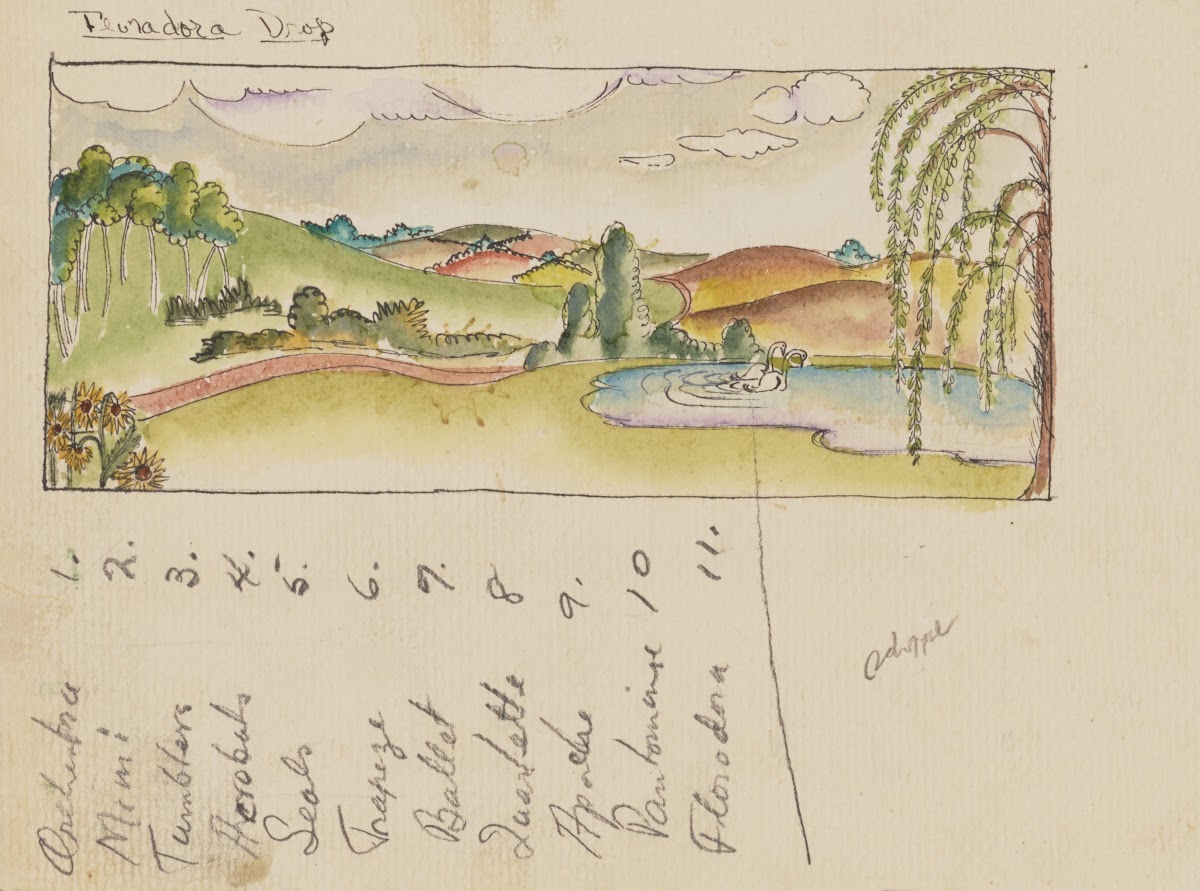 Floradora Drop
Orchestra 1.
Mimi 2.
Tumblers 3.
Acrobats 4.
Seals 5.
Trapeze 6.
Ballet 7.
Quartette 8
Apache 9.
Pantomime 10
Florodora 11.